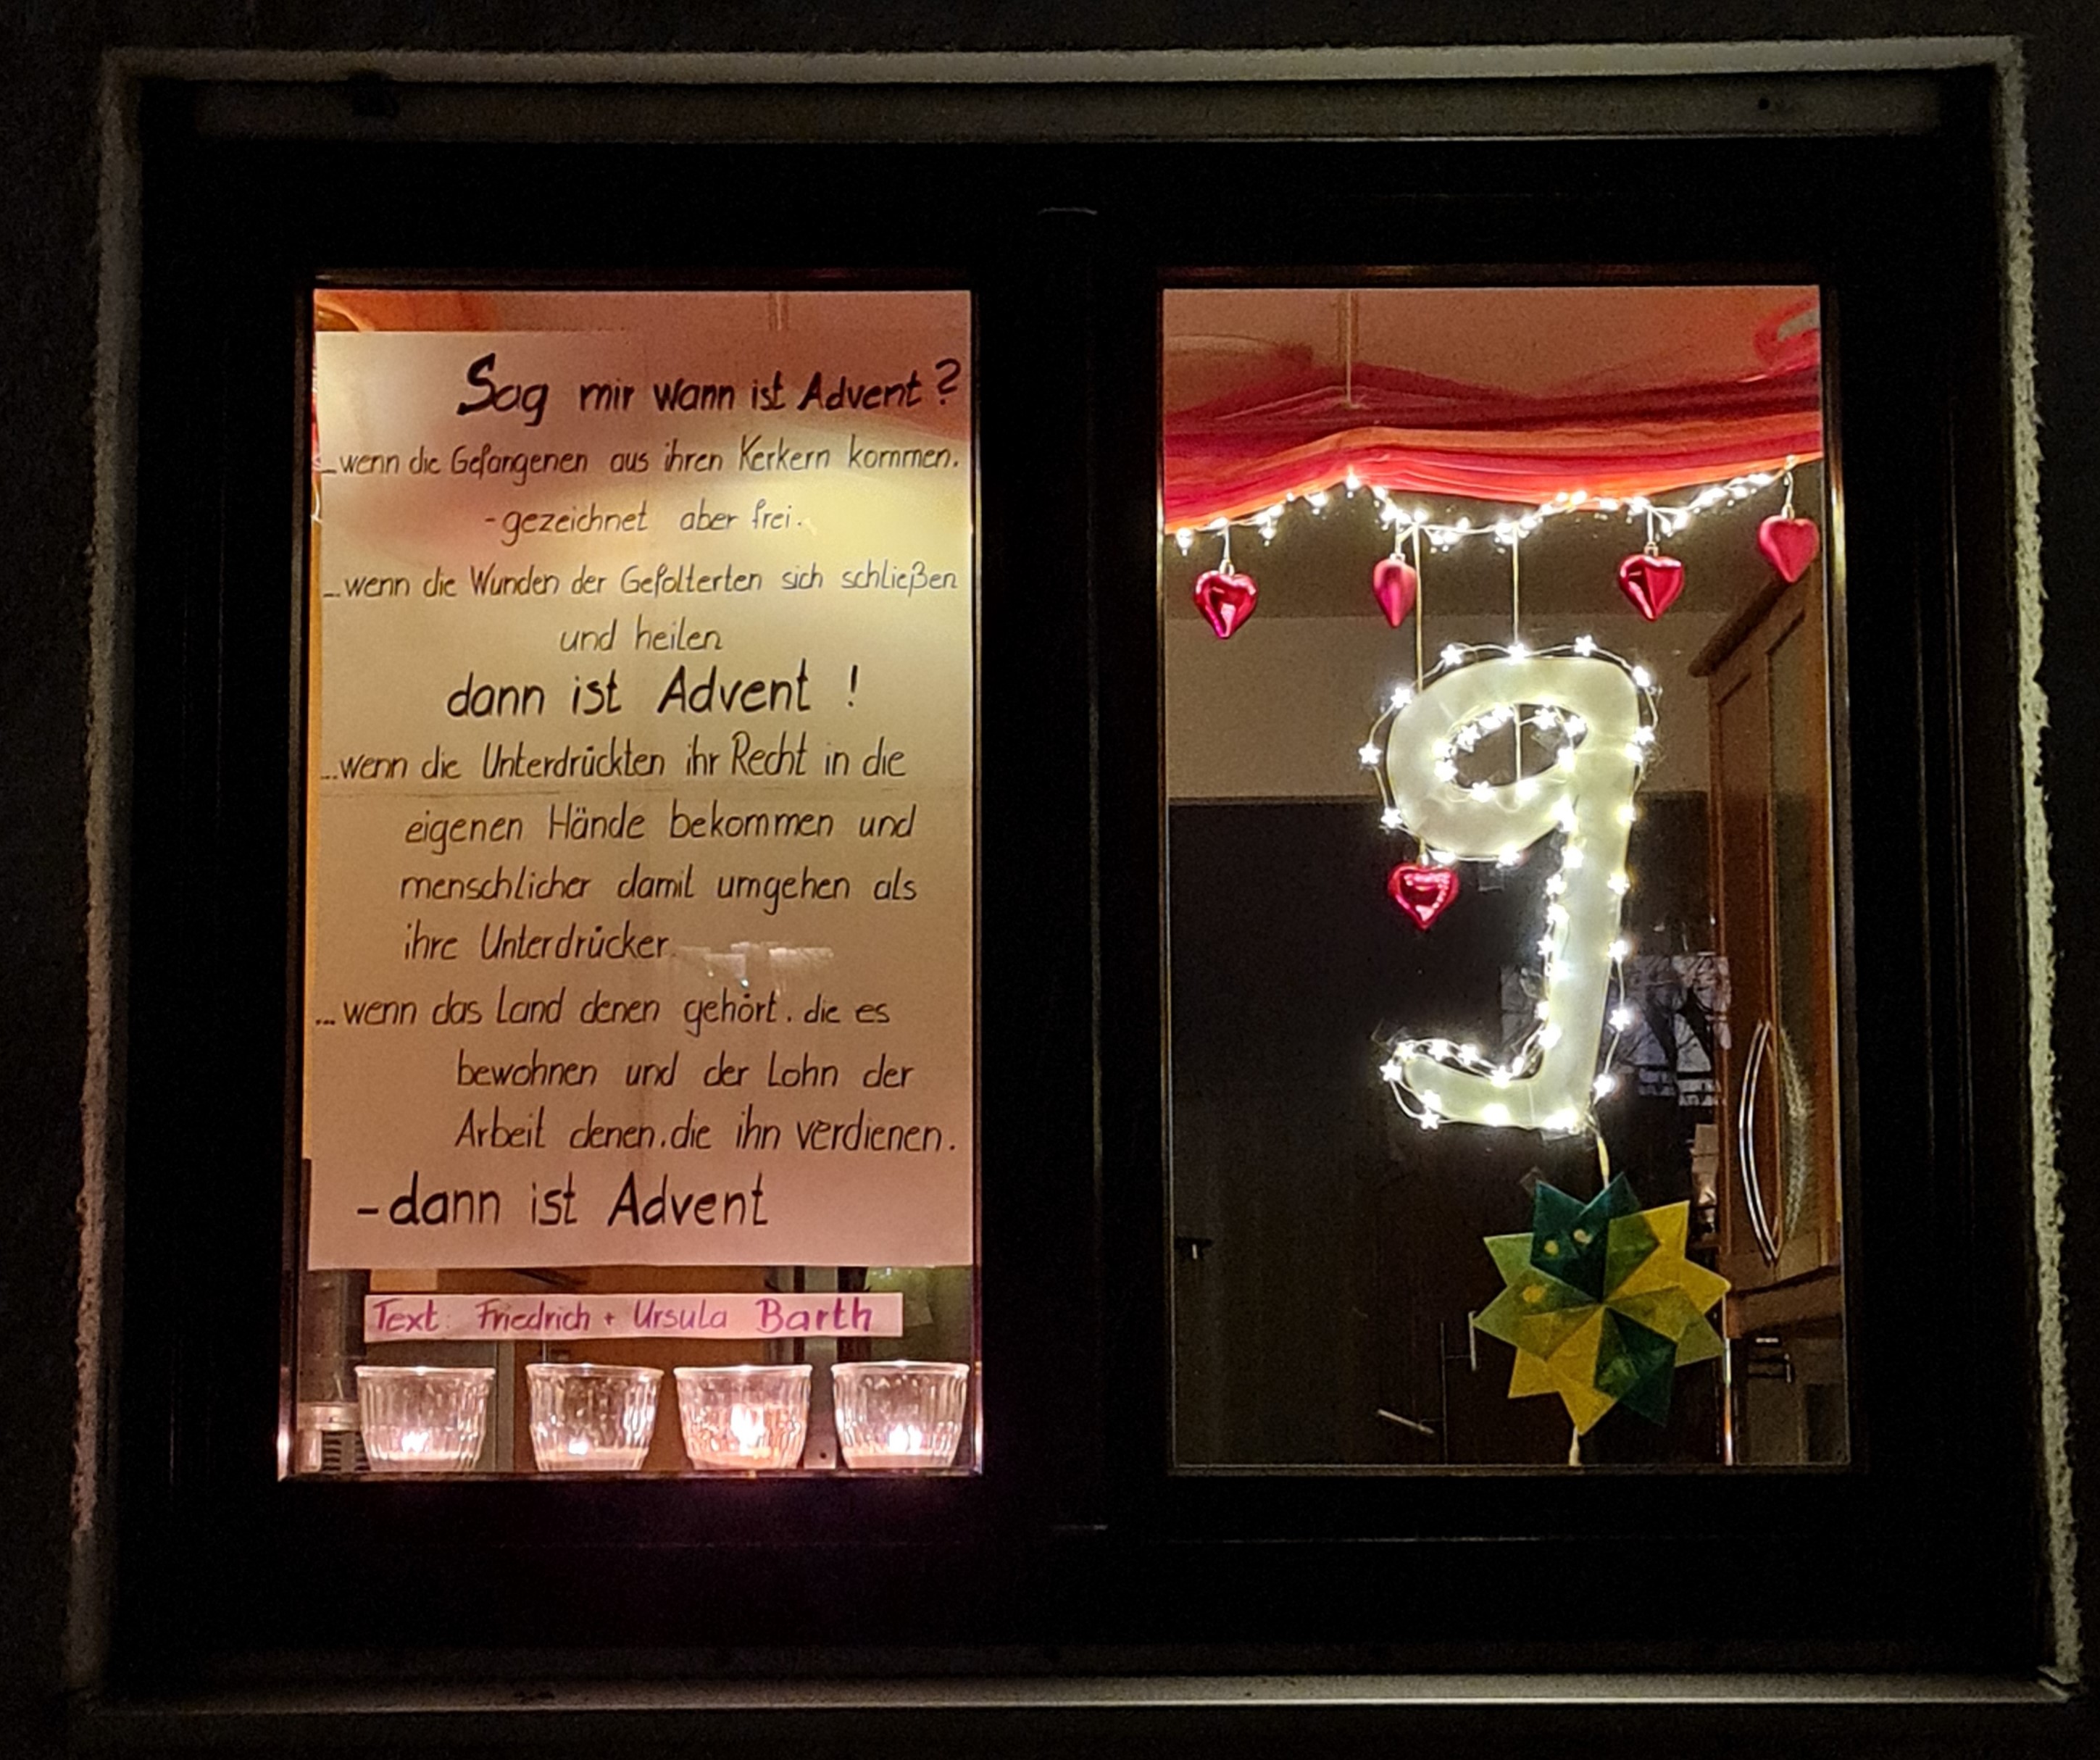 Sag mir wann ist Advent?
...wenn die Gefangenen aus ihren Kerkern kommen.
- gezeichnet aber frei.
...wenn die Wunden der Gefolterten sich schließen
und heilen
dann ist Advent !
...wenn die Unterdrückten ihr Recht in die
eigenen Hände bekommen und
menschlicher damit umgehen als
ihre Unterdrücker.
...wenn das Land denen gehört. die es
bewohnen und der Lohn der
Arbeit denen.die ihn verdienen.
- dann ist Advent
Text: Friedrich + Ursula Barth
9